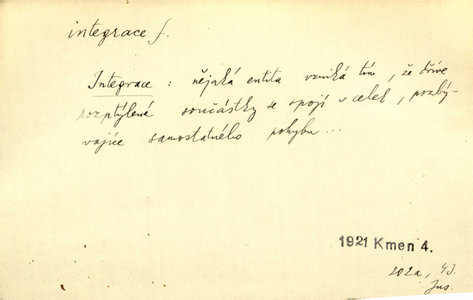 integrace f.
Integrace : nějaká entita vzniká tím, že dříve
rozptýlené součástky se spojí v celek, pozbý-
vajíce samostatného pohybu ...
1921 Kmen 4.
202a, 43.
Jus.